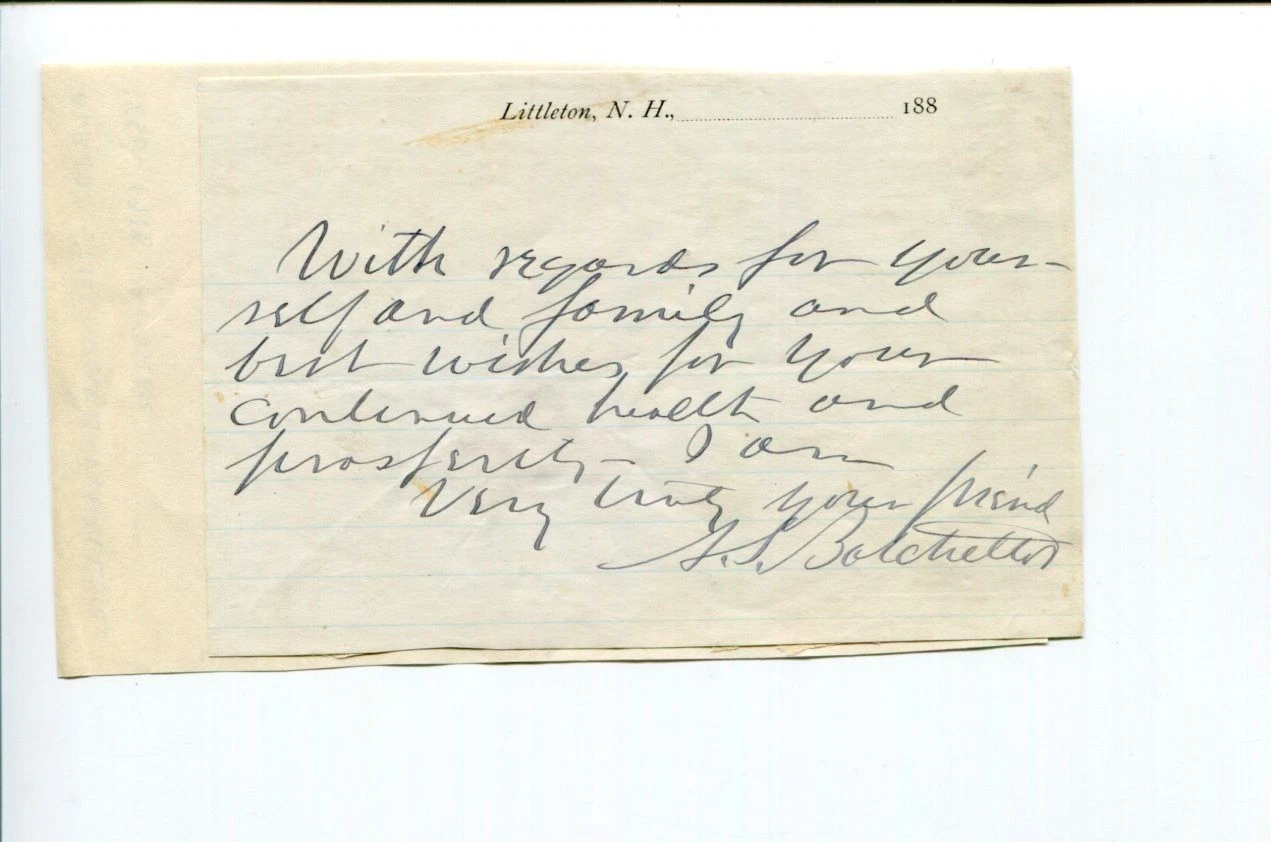 Littleton, N. H., 188
With regards for your-
self and family and
best wishes for your
continued health and
prosperity - I am
Very truly your friend
A. S. Batchellor